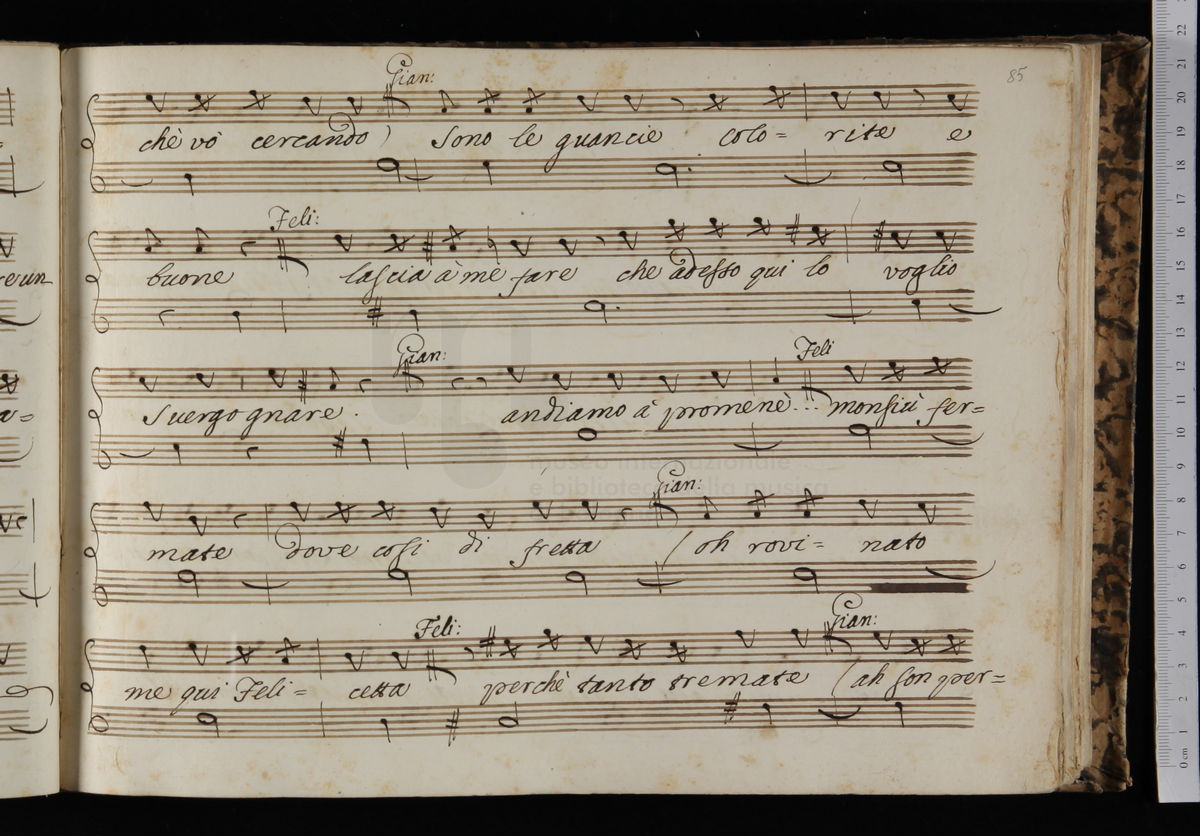 85
Gian:
chè vò cercando) Sono le guancie colo= rite e
Feli:
buone lascia à me fare che adesso qui lo voglio
Gian: Feli
Svergognare. andiamo à promenè... monsiù fer=
Gian:
mate dove cosi di fretta (oh rovi= nato
Feli: Gian:
me qui Feli= cetta perchè tanto tremate (ah son per=
museo internazionale
e biblioteca della musica
0 cm 1 2 3 4 5 6 7 8 9 10 11 12 13 14 15 16 17 18 19 20 21 22